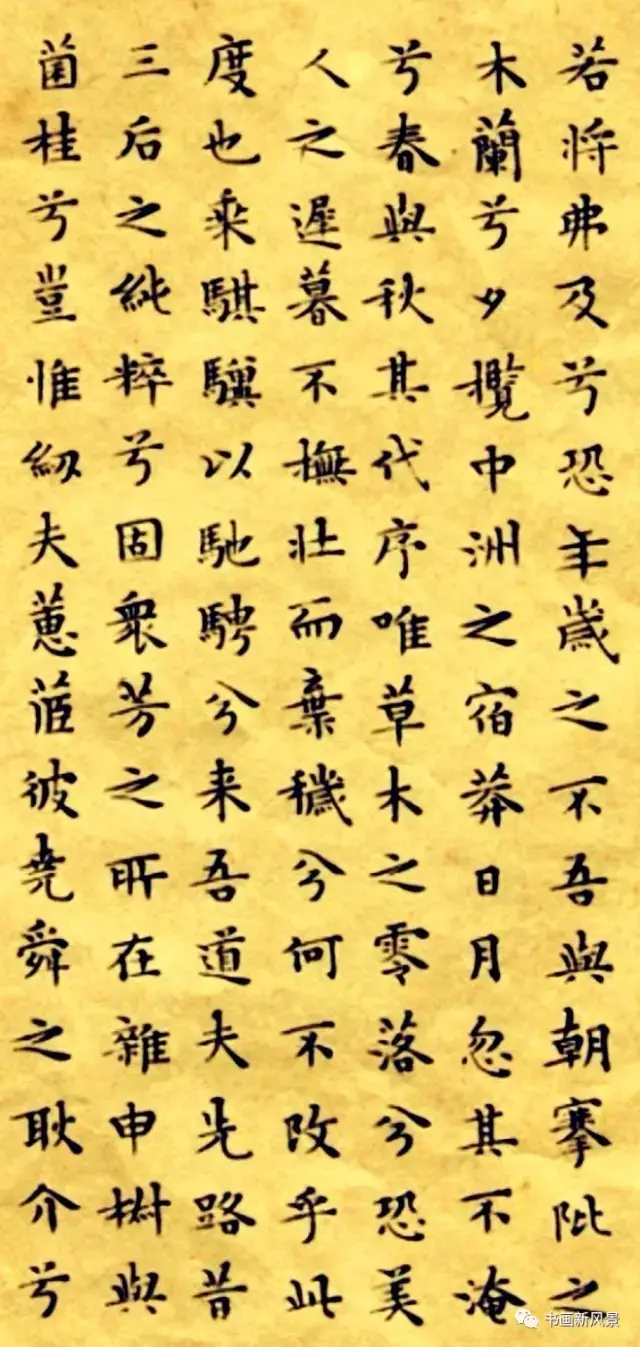 若将弗及兮恐年歲之不吾與朝搴阰之
木蘭兮夕攬中洲之宿莽日月忽其不淹
兮春與秋其代序唯草木之零落兮恐美
人之遲暮不撫壯而棄穢兮何不改乎此
度也乘騏驥以馳騁兮来吾道夫先路昔
三后之純粹兮固衆芳之所在雜申椒與
菌桂兮豈惟紉夫蕙茝彼堯舜之耿介兮
书画新风景